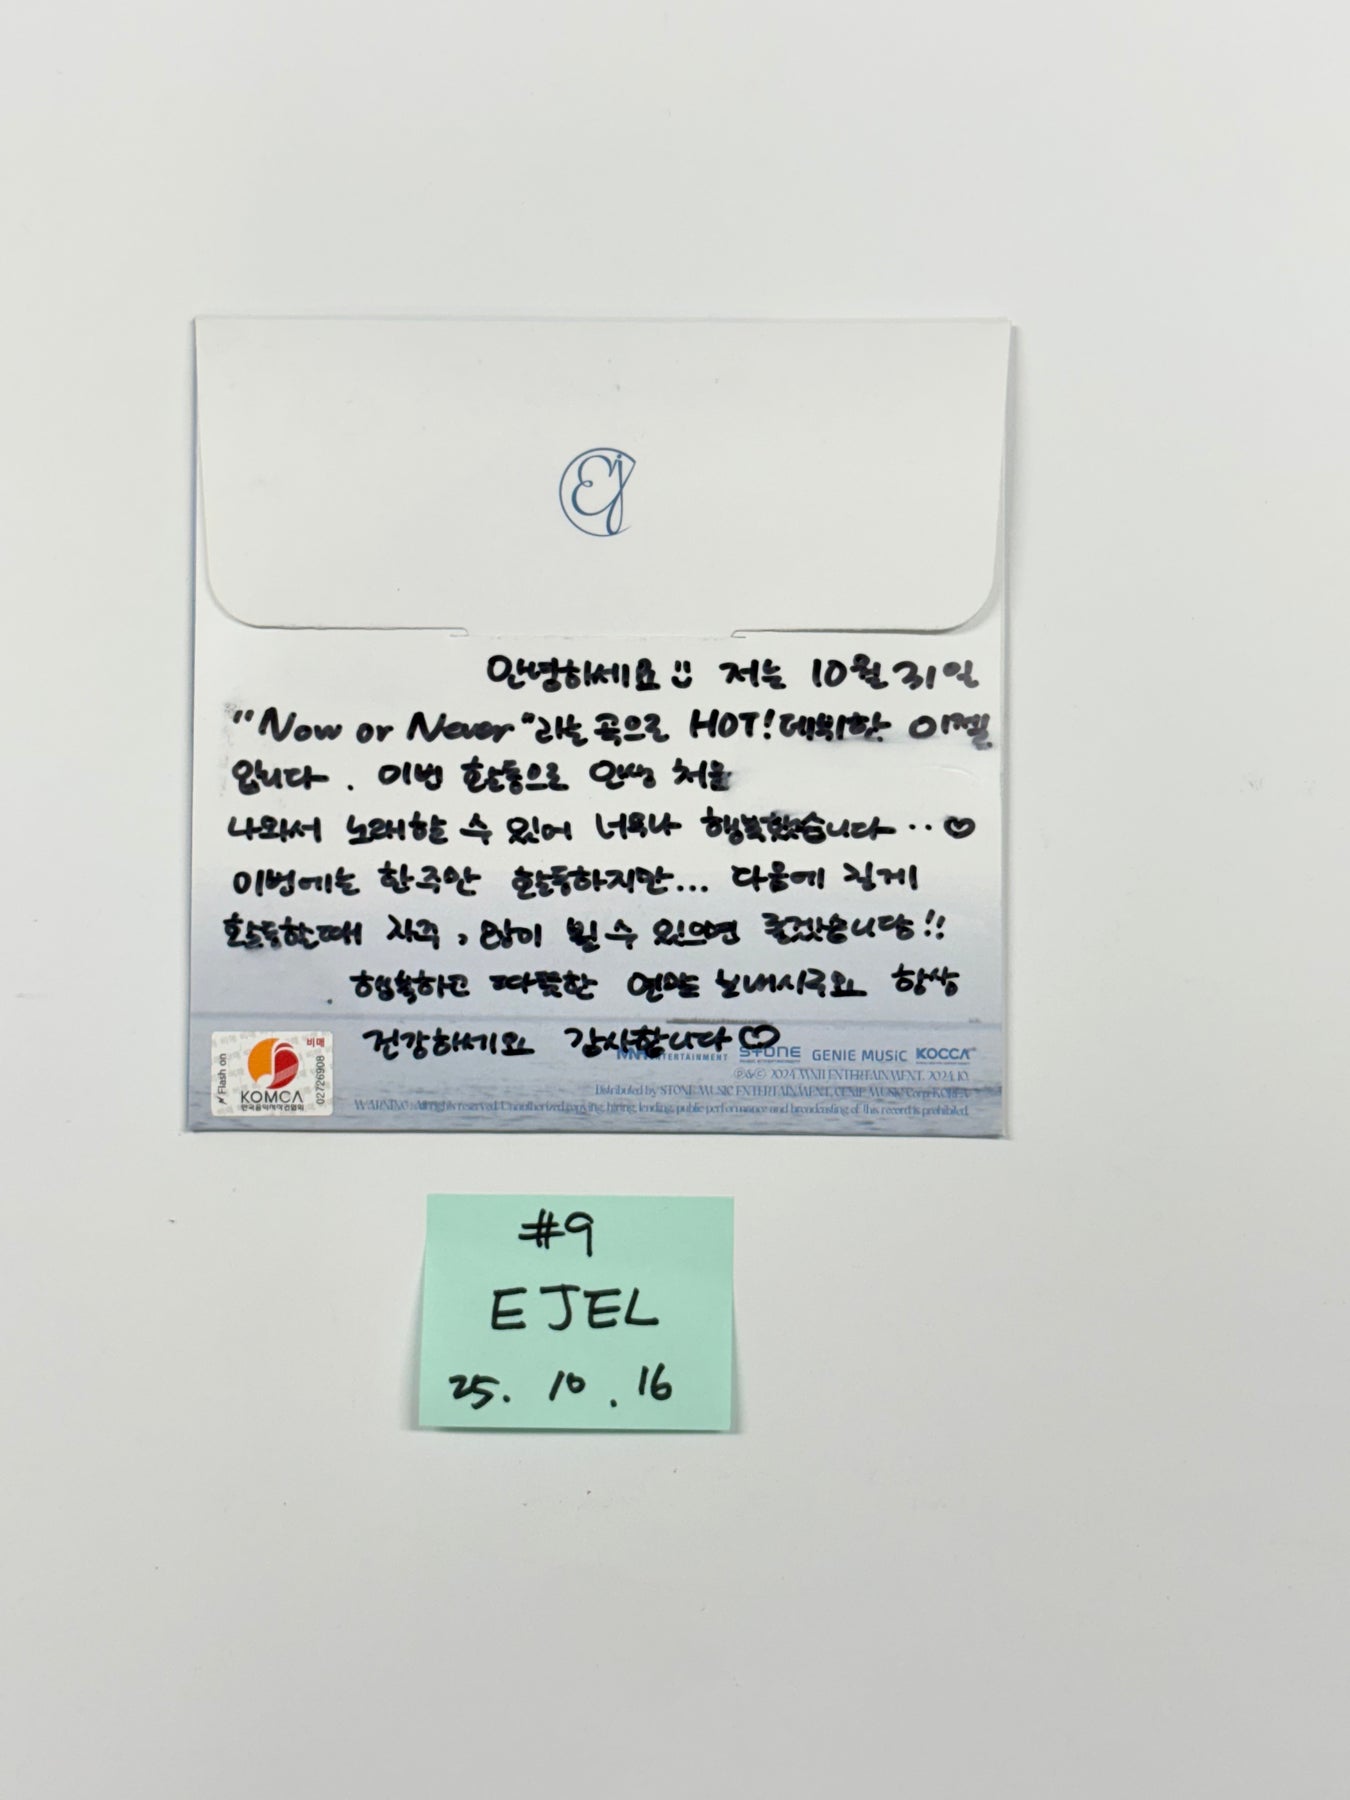 Ej
안녕하세요 :) 저는 10월 31일
"Now or Never"라는 곡으로 HOT! 데뷔한 이젤
입니다. 이번 활동으로 인생 처음
나와서 노래할 수 있어 너무나 행복했습니다..♡
이번에는 한주만 활동하지만... 다음에 길게
활동할때 자주, 많이 뵐 수 있으면 좋겠습니당!!
행복하고 따뜻한 연말 보내시구요 항상
건강하세요 감사합니다♡
Flash on
비매
KOMCA
한국음악저작권협회
02726908
ENTERTAINMENT STONE MUSIC ENTERTAINMENT GENIE MUSIC KOCCA
℗&© 2024 MNH ENTERTAINMENT. 2024.10.
Distributed by STONE MUSIC ENTERTAINMENT, GENIE MUSIC Corp. KOREA
WARNING : All rights reserved. Unauthorized copying, hiring, lending, public performance and broadcasting of this record is prohibited.
#9
EJEL
25. 10. 16